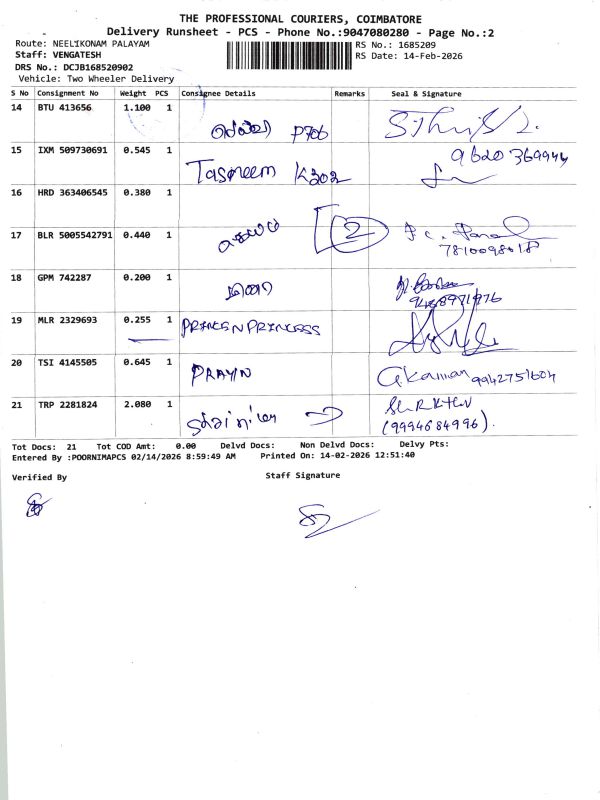 THE PROFESSIONAL COURIERS, COIMBATORE
Delivery Runsheet - PCS - Phone No.:9047080280 - Page No.:2
Route: NEELIKONAM PALAYAM
RS No.: 1685209
Staff: VENGATESH
RS Date: 14-Feb-2026
DRS No.: DCJB168520902
Vehicle: Two Wheeler Delivery
S No Consignment No Weight PCS Consignee Details Remarks Seal & Signature
14 BTU 413656 1.100 1 P706
15 IXM 509730691 0.545 1 Tasneem K302 9620369944
16 HRD 363406545 0.380 1
17 BLR 5005542791 0.440 1 2 7810098018
18 GPM 742287 0.200 1
19 MLR 2329693 0.255 1 PRINCE N PRINCESS
20 TSI 4145505 0.645 1 PRAVIN 9942751604
21 TRP 2281824 2.080 1 (9994684996).
Tot Docs: 21 Tot COD Amt: 0.00 Delvd Docs: Non Delvd Docs: Delvy Pts:
Entered By :POORNIMAPCS 02/14/2026 8:59:49 AM Printed On: 14-02-2026 12:51:40
Verified By Staff Signature